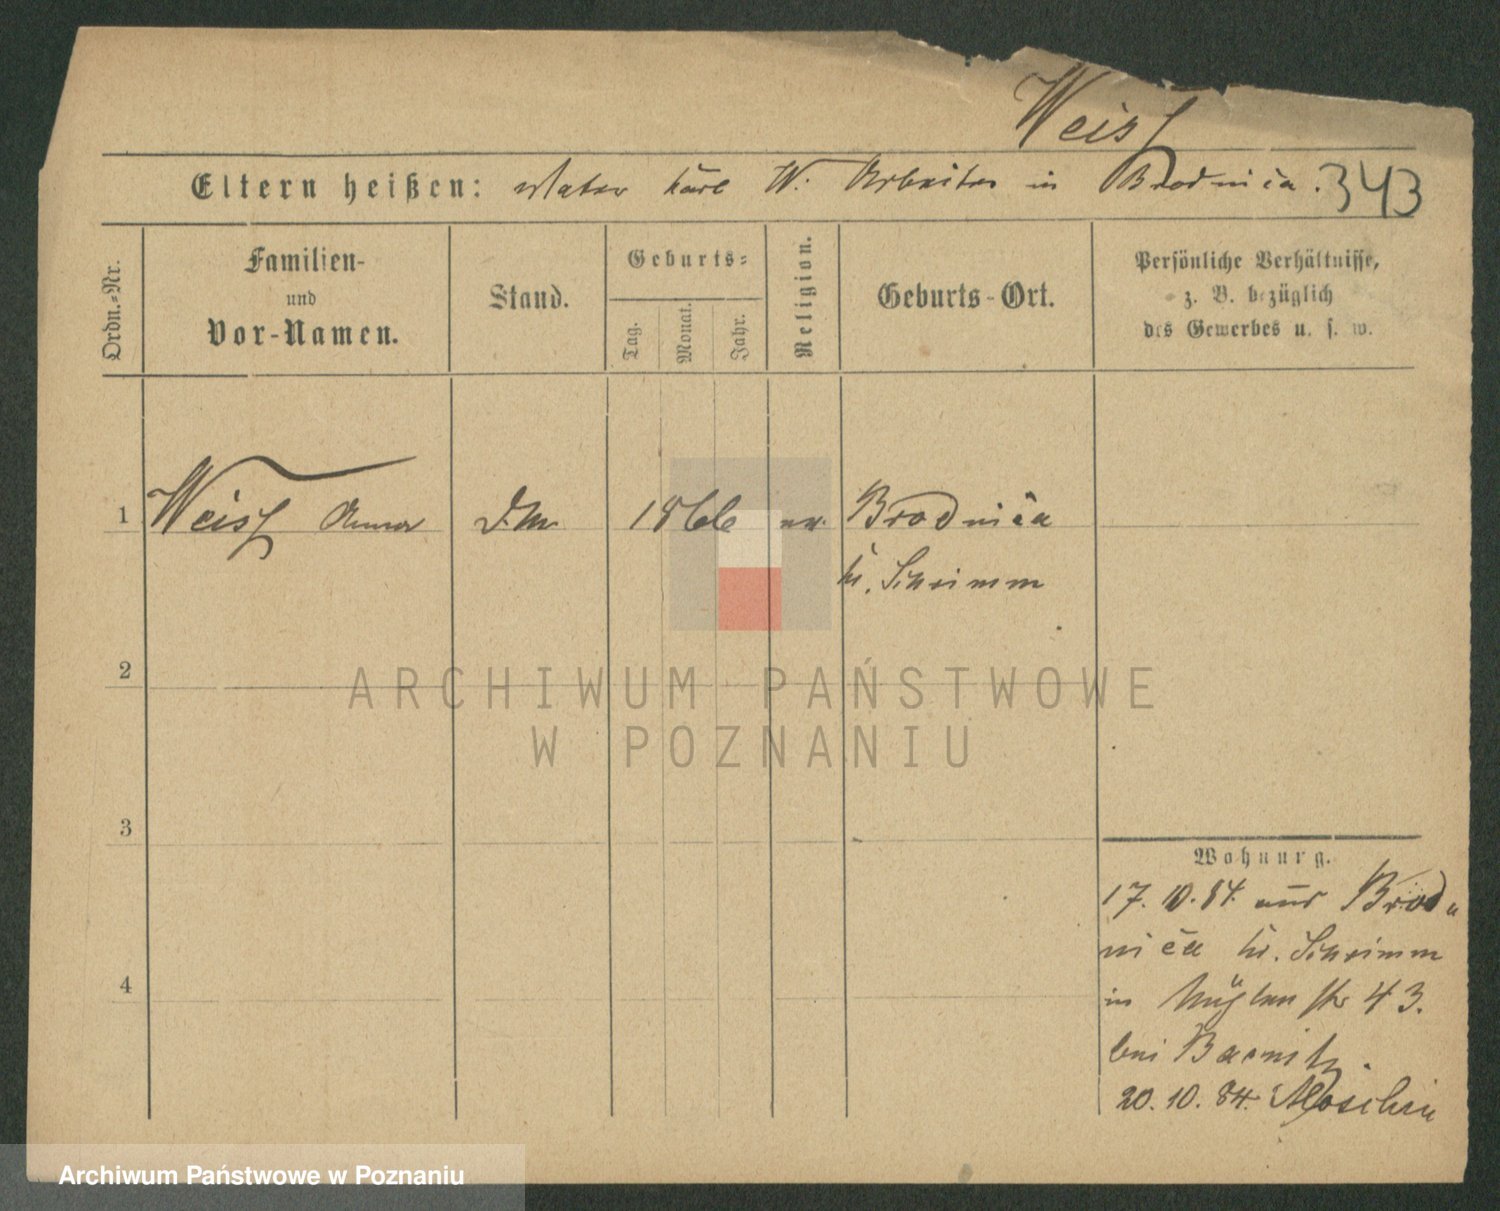 Weiss
Eltern heißen: Vater Karl W. Arbeiter in Brodnica. 343
Ordn.-Nr.
Familien-
und
Vor-Namen.
Stand.
Geburts-
Tag.
Monat.
Jahr.
Religion.
Geburts-Ort.
Persönliche Verhältnisse,
z. B. bezüglich
des Gewerbes u. s. w.
1 Weiss Anna D.M. 1866 ev. Brodnica
Kr. Schrimm
2
ARCHIWUM PAŃSTWOWE
W POZNANIU
3
Wohnung.
17. 10. 84. aus Brod
nica Kr. Schrimm
4
in Mühlen str 43.
bei Barnitz.
20. 10. 84. Moschin
Archiwum Państwowe w Poznaniu